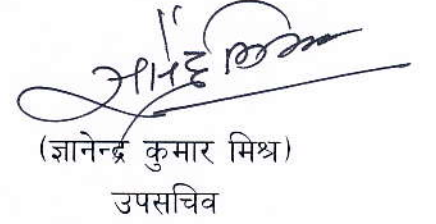 (ज्ञानेन्द्र कुमार मिश्र)
उपसचिव